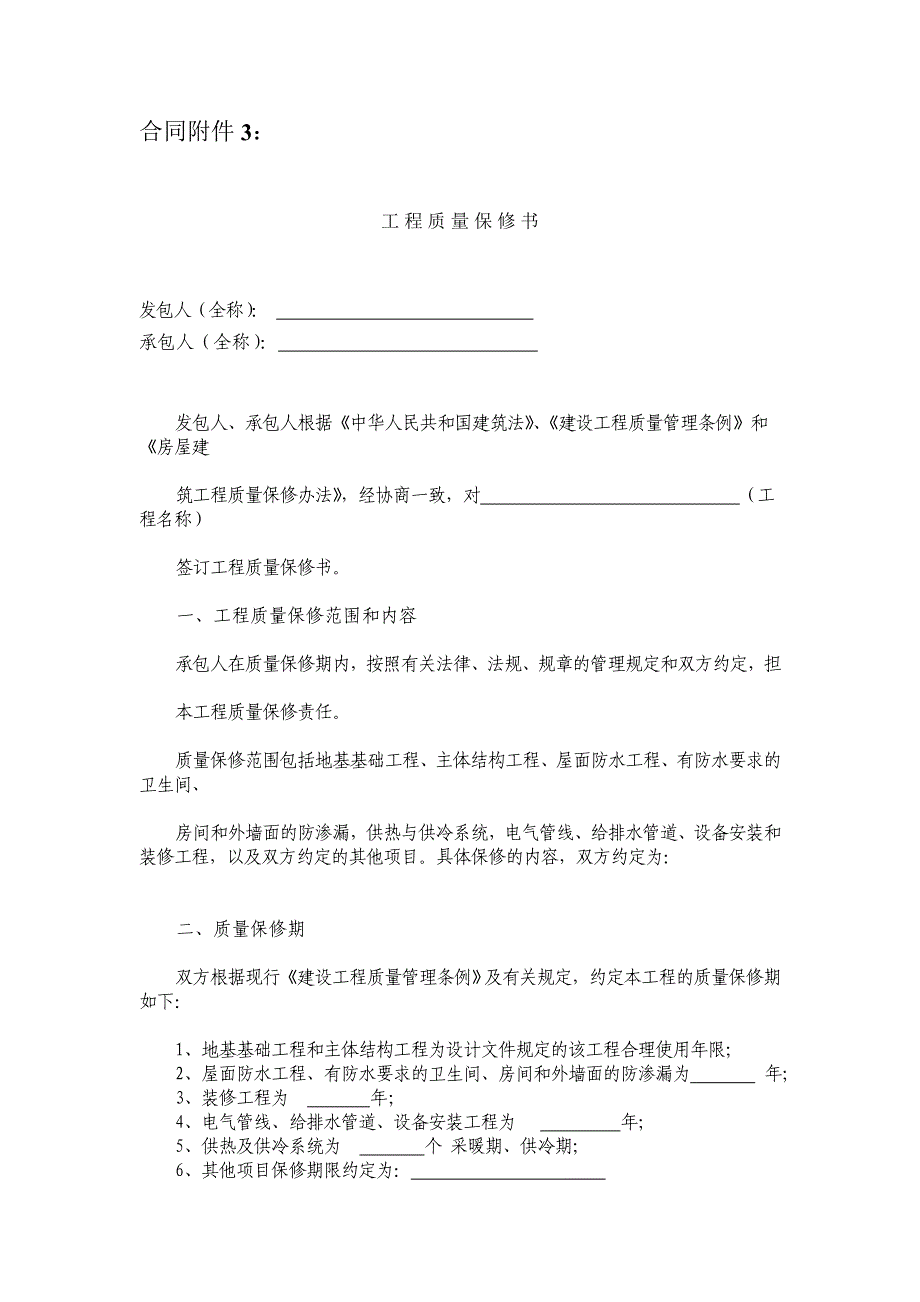 合同附件 3：
工 程 质 量 保 修 书
发包人（全称）：
承包人（全称）：
发包人、承包人根据《中华人民共和国建筑法》、《建设工程质量管理条例》和
《房屋建
筑工程质量保修办法》，经协商一致，对（工
程名称）
签订工程质量保修书。
一、工程质量保修范围和内容
承包人在质量保修期内，按照有关法律、法规、规章的管理规定和双方约定，担
本工程质量保修责任。
质量保修范围包括地基基础工程、主体结构工程、屋面防水工程、有防水要求的
卫生间、
房间和外墙面的防渗漏，供热与供冷系统，电气管线、给排水管道、设备安装和
装修工程，以及双方约定的其他项目。具体保修的内容，双方约定为：
二、质量保修期
双方根据现行《建设工程质量管理条例》及有关规定，约定本工程的质量保修期
如下：
1、地基基础工程和主体结构工程为设计文件规定的该工程合理使用年限；
2、屋面防水工程、有防水要求的卫生间、房间和外墙面的防渗漏为 年；
3、装修工程为 年；
4、电气管线、给排水管道、设备安装工程为 年；
5、供热及供冷系统为 个 采暖期、供冷期；
6、其他项目保修期限约定为：